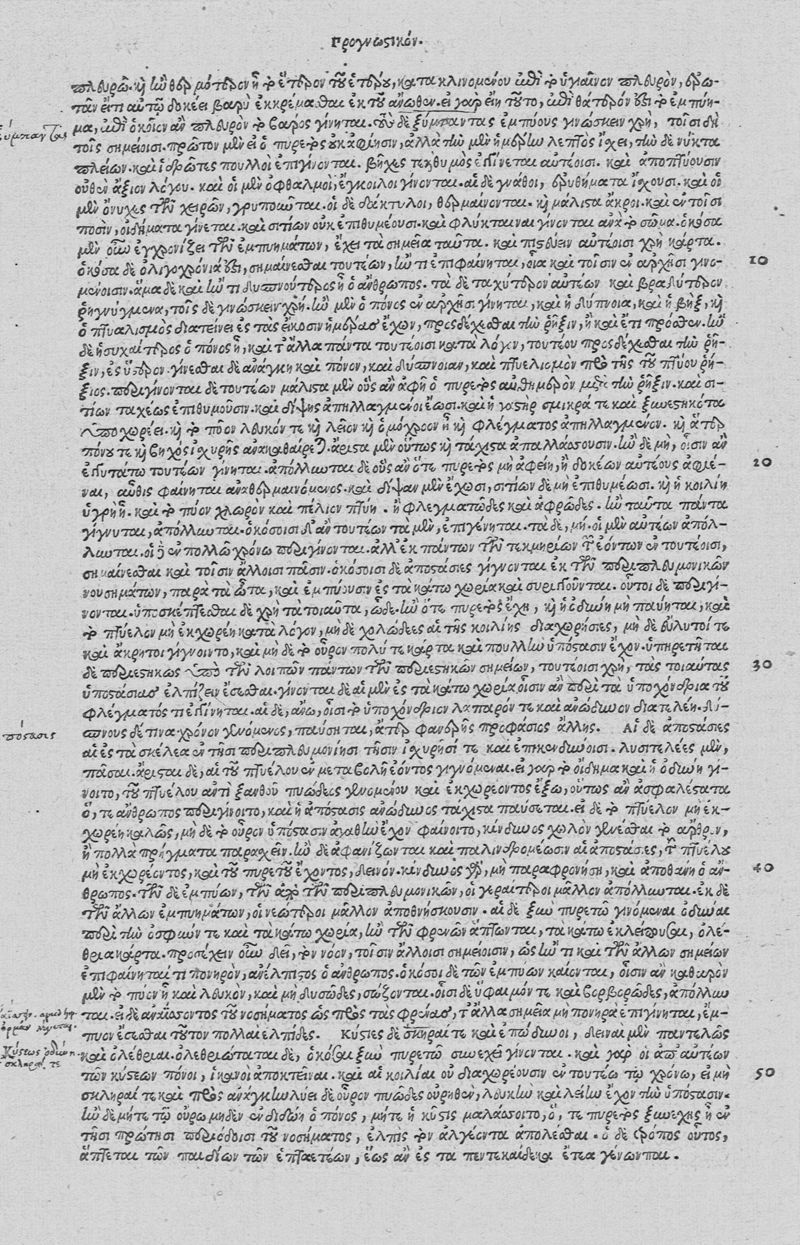 Προγνωστικόν.
πλευρῶ. κὴ ἢν θερμότερον ᾖ τὸ ἕτερον τοῦ ἑτέρου, κατακλινομένου ἐπὶ τὸ ὑγιαῖνον πλευρὸν, ἐρω-
τᾶν εἴ τι αὐτῷ δοκέει βαρὺ ἐκκρέμασθαι ἐκ τοῦ ἄνωθεν. εἰ γὰρ εἴη τοῦτο, ἐπὶ θάτερόν ἐστι τὸ ἐμπύη-
μα, ἐπὶ ὁκοῖον ἂν πλευρὸν τὸ βάρος γίνηται. τοὺς δὲ ξύμπαντας ἐμπύους γινώσκειν χρὴ, τοῖσι δὴ
τοῖς σημείοισι. πρῶτον μὲν εἰ ὁ πυρετὸς οὐκ ἀφίησιν, ἀλλὰ τὴν μὲν ἡμέρην λεπτὸς ἴσχει, τὴν δὲ νύκτα
πλείων. καὶ ἱδρῶτες πουλλοὶ ἐπιγίνονται. βῆχές τε θυμὸς ἐγγίνεται αὐτέοισι. καὶ ἀποπτύουσιν
οὐθὲν ἄξιον λόγου. καὶ οἱ μὲν ὀφθαλμοὶ, ἔγκοιλοι γίνονται. αἱ δὲ γνάθοι, ἐρυθήματα ἴσχουσι. καὶ οἱ
μὲν ὄνυχες τῶν χειρῶν, γρυποῦνται. οἱ δὲ δάκτυλοι, θερμαίνονται. κὴ μάλιστα ἄκροι. καὶ ἐν τοῖσι
ποσὶν, οἰδήματα γίνεται. καὶ σιτίων οὐκ ἐπιθυμέουσι. καὶ φλύκταιναι γίνονται ἀνὰ τὸ σῶμα. ὁκόσα
μὲν οὖν ἐγχρονίζει τῶν ἐμπυημάτων, ἔχει τὰ σημεῖα ταῦτα. καὶ πιστεύειν αὐτέοισι χρὴ κάρτα.
ὁκόσα δὲ ὀλιγοχρόνιά ἐστι, σημαίνεσθαι τουτέων, ἤν τι ἐπιφαίνηται, οἷα καὶ τοῖσιν ἐν ἀρχῇσι γινο- 10
μένοισιν. ἅμα δὲ καὶ ἤν τι δυσπνούτερος ᾖ ὁ ἄνθρωπος. τὰ δὲ ταχύτερον αὐτέων καὶ βραδύτερον
ῥηγνύμενα, τοῖς δὲ γινώσκειν χρή. ἢν μὲν ὁ πόνος ἐν ἀρχῇσι γίνηται, καὶ ἡ δύσπνοια, καὶ ἡ βὴξ, κὴ
ὁ πτυαλισμὸς διατείνει ἐς τὰς εἴκοσιν ἡμέρας ἔχων, προσδέχεσθαι τὴν ῥῆξιν, ἢ καὶ ἔτι πρόσθεν. ἢν
δὲ ἡσυχαίτερος ὁ πόνος ᾖ, καὶ τἄλλα πάντα τουτέοισι κατὰ λόγον, τουτέου προσδέχεσθαι τὴν ῥῆ-
ξιν, ἐς ὕστερον. γίνεσθαι δὲ ἀνάγκη καὶ πόνον, καὶ δύσπνοιαν, καὶ πτυελισμὸν πρὸ τῆς τοῦ πύου ῥή-
ξιος. περιγίνονται δὲ τουτέων μάλιστα μὲν οὓς ἂν ἀφῇ ὁ πυρετὸς αὐθημερὸν μετὰ τὴν ῥῆξιν. καὶ σι-
τίων ταχέως ἐπιθυμοῦσιν. καὶ δίψης ἀπηλλαγμένοι ἔωσι. καὶ ἡ γαστὴρ σμικρά τε καὶ ξυνεστηκότα
ὑποχωρέει. κὴ τὸ πῦον λευκόν τε κὴ λεῖον κὴ ὁμόχροον ᾖ κὴ φλέγματος ἀπηλλαγμένον. κὴ ἄτερ
πόνου τε κὴ βηχὸς ἰσχυρῆς ἀνακαθαίρεται. ἄριστα μὲν οὕτως κὴ τάχιστα ἀπαλλάσσουσιν. ἢν δὲ μὴ, οἷσιν ἂν
ἐγγυτάτω τουτέων γίνηται. ἀπόλλυνται δὲ οὓς ἂν ὅ τε πυρετὸς μὴ ἀφείη, ἢ δοκέων αὐτέους ἀφιέ- 20
ναι, αὖθις φαίνηται ἀναθερμαινόμενος. καὶ δίψαν μὲν ἔχωσι, σιτίων δὲ μὴ ἐπιθυμέωσι. κὴ ἡ κοιλίη
ὑγρὴ ᾖ. καὶ τὸ πύον χλωρὸν καὶ πέλιον πτύῃ. ἢ φλεγματῶδες καὶ ἀφρῶδες. ἢν ταῦτα πάντα
γίγνηται, ἀπόλλυνται. ὁκόσοισι δ' ἂν τουτέων τὰ μὲν, ἐπιγένηται. τὰ δὲ, μή. οἱ μὲν αὐτέων ἀπόλ-
λυνται. οἱ δὲ ἐν πολλῷ χρόνῳ περιγίνονται. ἀλλ' ἐκ πάντων τῶν τεκμηρίων τῶν ἐόντων ἐν τουτέοισι,
σημαίνεσθαι καὶ τοῖσιν ἄλλοισι πᾶσιν. ὁκόσοισι δὲ ἀποστάσιες γίγνονται ἐκ τῶν περιπλευμονικῶν
νουσημάτων, παρὰ τὰ ὦτα, καὶ ἐμπύουσιν ἐς τὰ κάτω χωρία καὶ συριγγοῦνται. οὗτοι δὲ περιγί-
νονται. ὑποσκέπτεσθαι δὲ χρὴ τὰ τοιαῦτα, ὧδε. ἢν ὅ τε πυρετὸς ἔχῃ, κὴ ἡ ὀδύνη μὴ παύηται, καὶ
τὸ πτύελον μὴ ἐκχωρέῃ κατὰ λόγον, μὴ δὲ χολώδεες αἱ τῆς κοιλίης διαχωρήσιες, μὴ δὲ εὔλυτοί τε
καὶ ἄκρητοι γίγνοιντο, καὶ μὴ δὲ τὸ οὖρον πολύ τε κάρτα καὶ πουλλὴν ὑπόστασιν ἔχον. ὑπηρετῆται
δὲ περιεστηκὼς ὑπὸ τῶν λοιπῶν πάντων τῶν περιεστηκῶν σημείων, τουτέοισι χρὴ, τὰς τοιαύτας 30
ἀποστάσιας ἐλπίζειν ἔσεσθαι. γίνονται δὲ αἱ μὲν ἐς τὰ κάτω χωρία οἷσιν ἂν περὶ τὰ ὑποχόνδρια τοῦ
φλέγματός τι ἐγγίνηται. αἱ δὲ, ἄνω, οἷσι τὸ ὑποχόνδριον λαπαρόν τε καὶ ἀνώδυνον διατελέῃ. δύ-
σπνους δέ τινα χρόνον γενόμενος, παύσηται, ἄτερ φανερῆς προφάσιος ἄλλης. Αἱ δὲ ἀποστάσιες
αἱ ἐς τὰ σκέλεα ἐν τῇσι περιπλευμονίῃσι τῇσιν ἰσχυρῇσί τε καὶ ἐπικινδύνοισι. λυσιτελέες μὲν,
πᾶσαι. ἄρισται δὲ, αἱ τοῦ πτυέλου ἐν μεταβολῇ ἐόντος γιγνόμεναι. εἰ γὰρ τὸ οἴδημα καὶ ἡ ὀδύνη γί-
νοιτο, τοῦ πτυέλου ἀντὶ ξανθοῦ πυώδεος γενομένου καὶ ἐκχωρέοντος ἔξω, οὕτως ἂν ἀσφαλέστατα
ὅ, τε ἄνθρωπος περιγίνοιτο, καὶ ἡ ἀπόστασις ἀνώδυνος τάχιστα παύσεται. εἰ δὲ τὸ πτύελον μὴ ἐκ-
χωρέῃ καλῶς, μὴ δὲ τὸ οὖρον ὑπόστασιν ἀγαθὴν ἔχον φαίνοιτο, κίνδυνος χωλὸν γενέσθαι τὸ ἄρθρον,
ἢ πολλὰ πρήγματα παρασχεῖν. ἢν δὲ ἀφανίζωνται καὶ παλινδρομέωσιν αἱ ἀποστάσιες, τοῦ πτυέλου
μὴ ἐκχωρέοντος, καὶ τοῦ πυρετοῦ ἔχοντος, δεινόν. κίνδυνος γὰρ, μὴ παραφρονήσῃ, καὶ ἀποθάνῃ ὁ ἄν- 40
θρωπος. τῶν δὲ ἐμπύων, τῶν ἐκ τῶν περιπλευμονικῶν, οἱ γεραίτεροι μᾶλλον ἀπόλλυνται. ἐκ δὲ
τῶν ἄλλων ἐμπυημάτων, οἱ νεώτεροι μᾶλλον ἀποθνήσκουσιν. αἱ δὲ ξὺν πυρετῷ γινόμεναι ὀδύναι
περὶ τὴν ὀσφύν τε καὶ τὰ κάτω χωρία, ἢν τῶν φρενῶν ἅπτωνται, τὰ κάτω ἐκλείπουσαι, ὀλέ-
θριαι κάρτα. προσέχειν οὖν δεῖ, τὸν νόον, τοῖσιν ἄλλοισι σημείοισιν, ὡς ἤν τι καὶ τῶν ἄλλων σημείων
ἐπιφαίνηταί τι πονηρὸν, ἀνέλπιστος ὁ ἄνθρωπος. ὁκόσοι δὲ τῶν ἐμπύων καίονται, οἷσιν ἂν καθαρὸν
μὲν τὸ πύον ᾖ καὶ λευκὸν, καὶ μὴ δυσῶδες, σώζονται. οἷσι δὲ ὕφαιμόν τε καὶ βορβορῶδες, ἀπόλλυν
ται. εἰ δὲ ἀναΐσσοντος τοῦ νοσήματος ὡς πρὸς τὰς φρένας, τἄλλα σημεῖα μὴ πονηρὰ ἐπιγίνηται, ἔμ-
πυον ἔσεσθαι τοῦτον πολλαὶ ἐλπίδες. Κύστιες δὲ σκληραί τε καὶ ἐπώδυνοι, δειναὶ μὲν παντελῶς
καὶ ὀλέθριαι. ὀλεθριώταται δὲ, ὁκόσαι ξὺν πυρετῷ συνεχεῖ γίνονται. καὶ γὰρ οἱ ἀπ' αὐτέων
τῶν κύστεων πόνοι, ἱκανοὶ ἀποκτεῖναι. καὶ αἱ κοιλίαι οὐ διαχωρέουσιν ἐν τουτέῳ τῷ χρόνῳ, εἰ μὴ 50
σκληραί τε καὶ πρὸς ἀνάγκην. λύει δὲ οὖρον πυῶδες οὐρηθὲν, λευκὴν καὶ λείην ἔχον τὴν ὑπόστασιν.
ἢν δὲ μήτε τῷ οὔρῳ μηδὲν ἐνδιδῷ ὁ πόνος, μήτε ἡ κύστις μαλάσσοιτο, ὅ, τε πυρετὸς ξυνεχὴς ᾖ ἐν
τῇσι πρώτῃσι περιόδοισι τοῦ νοσήματος, ἐλπὶς τὸν ἀλγέοντα ἀπολέσθαι. ὁ δὲ τρόπος οὗτος,
ἅπτεται τῶν παιδίων τῶν ἑπταετέων, ἕως ἂν ἐς τὰ πεντεκαίδεκα ἔτεα γένωνται.